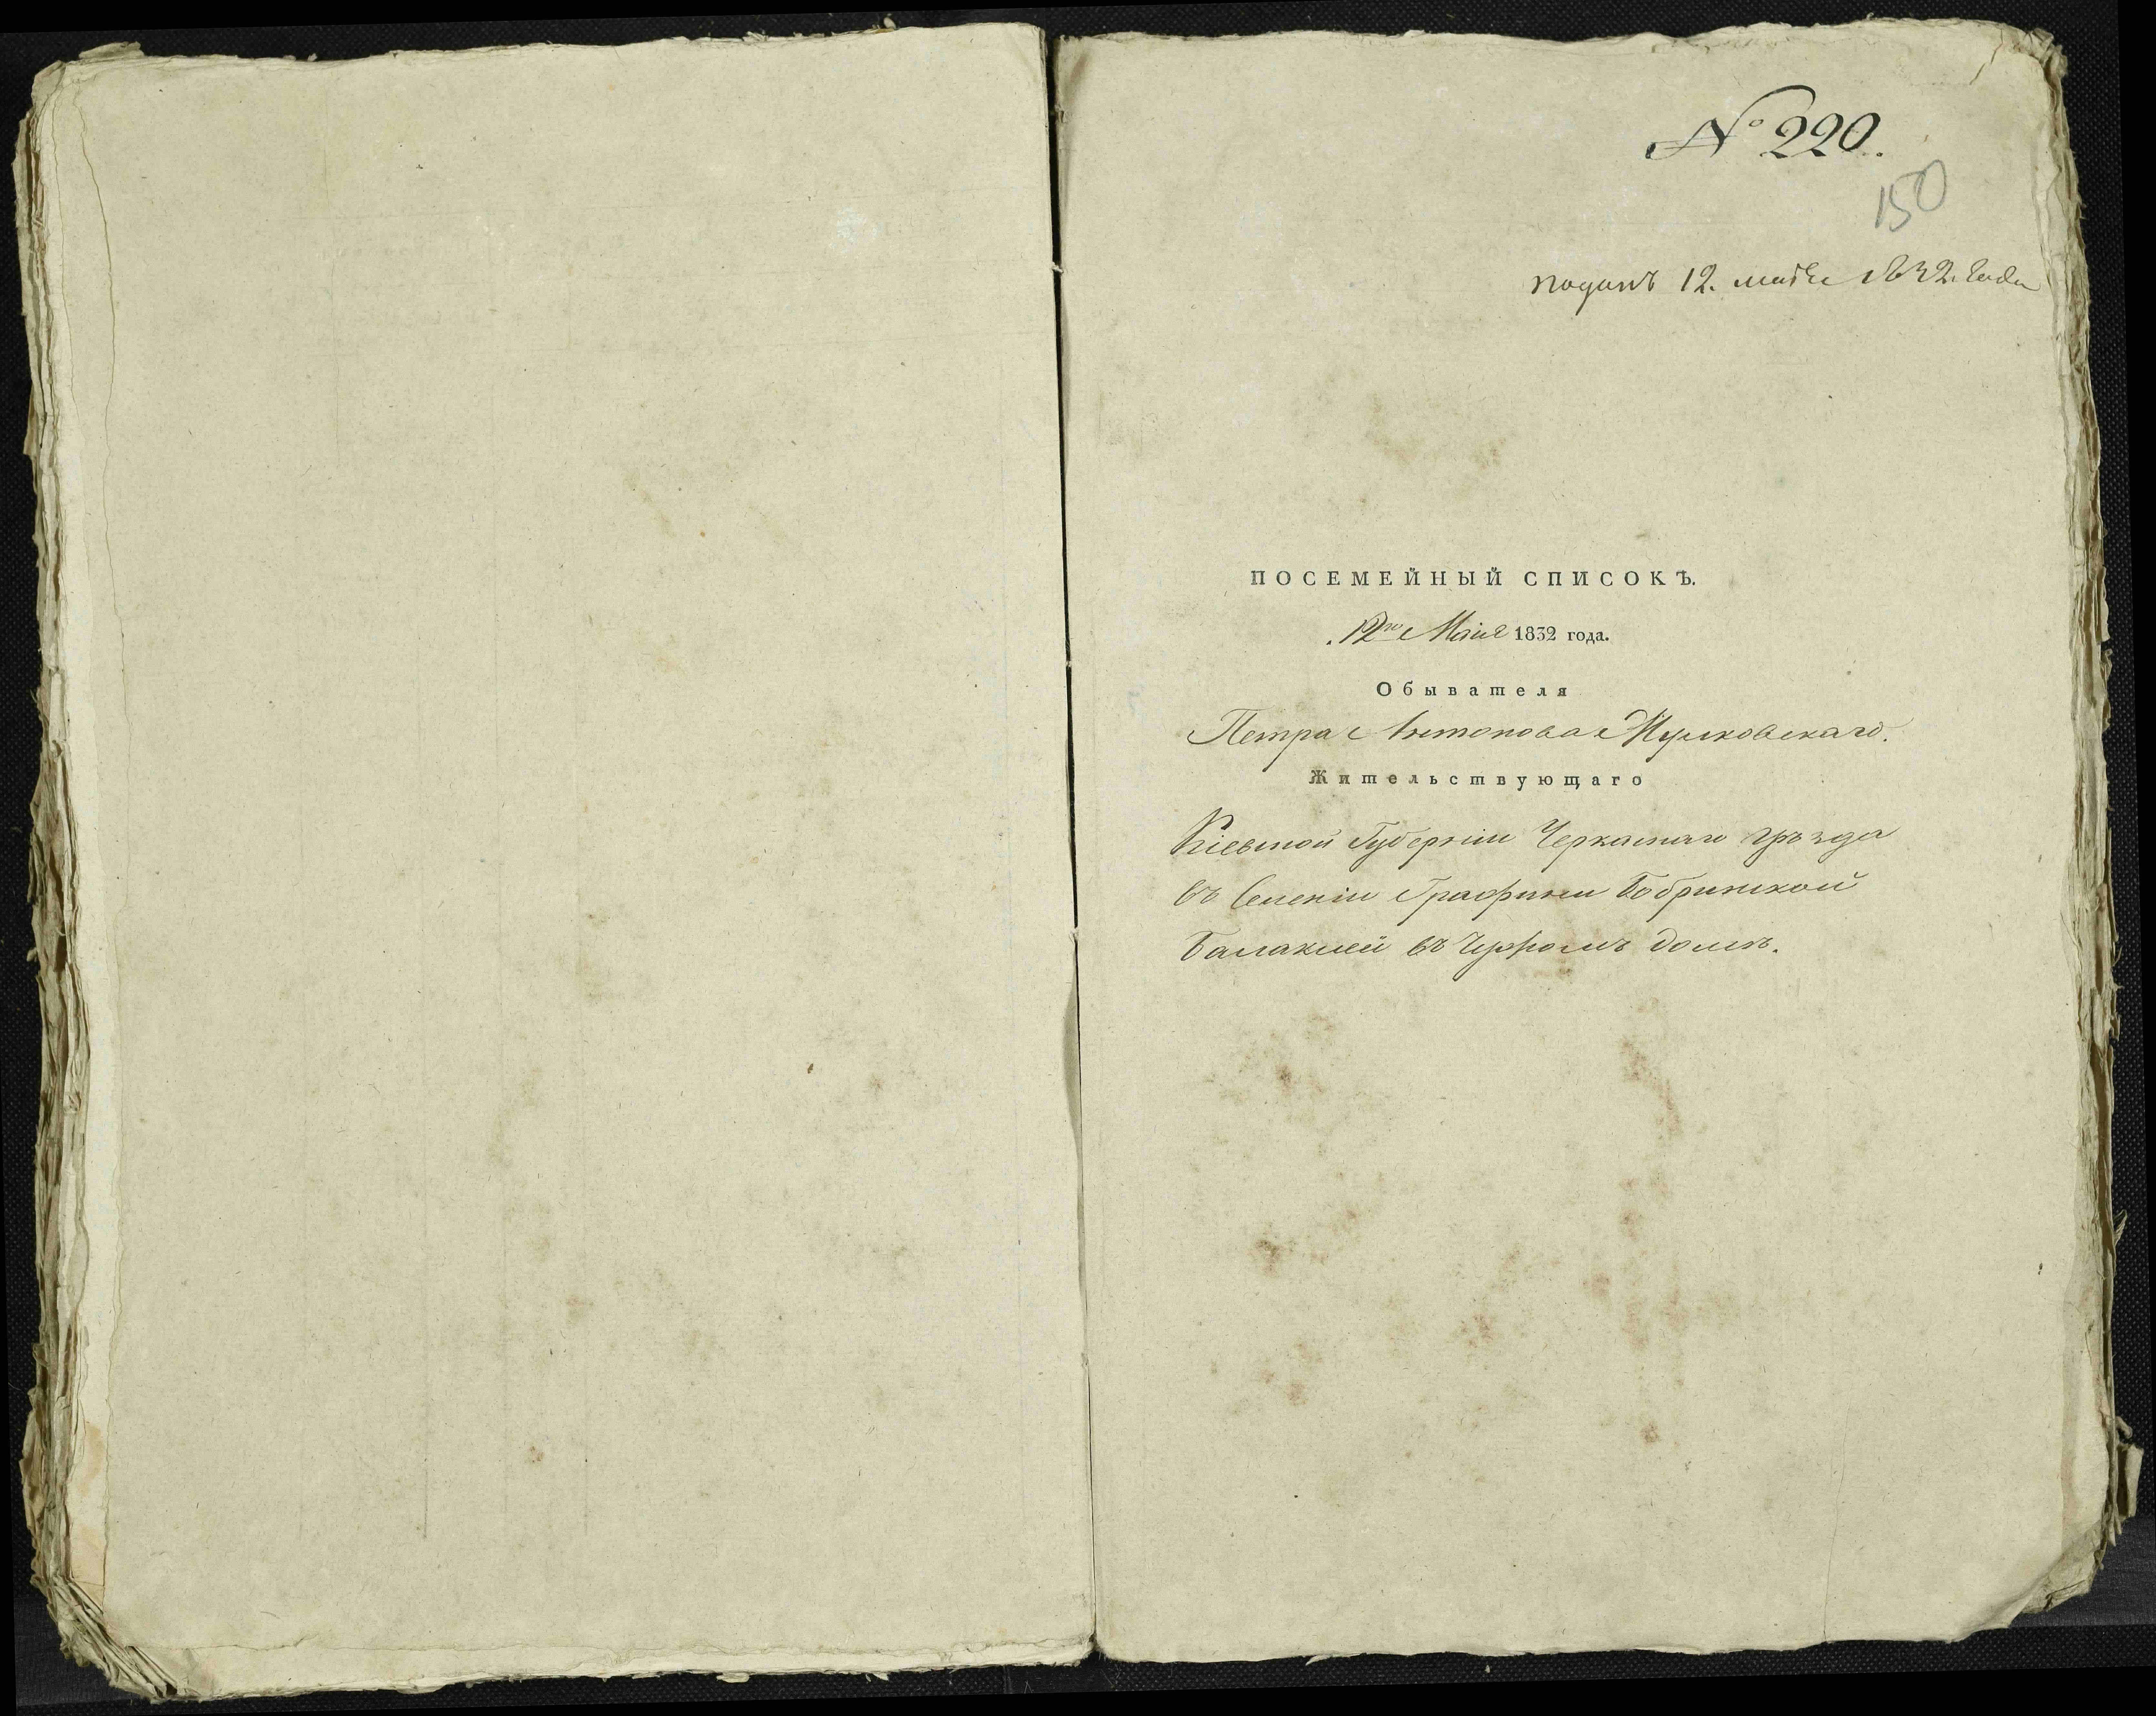 № 220.
150
поданъ 12. маія 1832. года
ПОСЕМЕЙНЫЙ СПИСОКЪ.
12го Маія 1832 года.
Обывателя
Петра Антонова
Жительствующаго
Кіевской Губерніи Черкаскаго уѣзда
въ Селеніи Графини Бобринской
Балаклей въ домѣ.